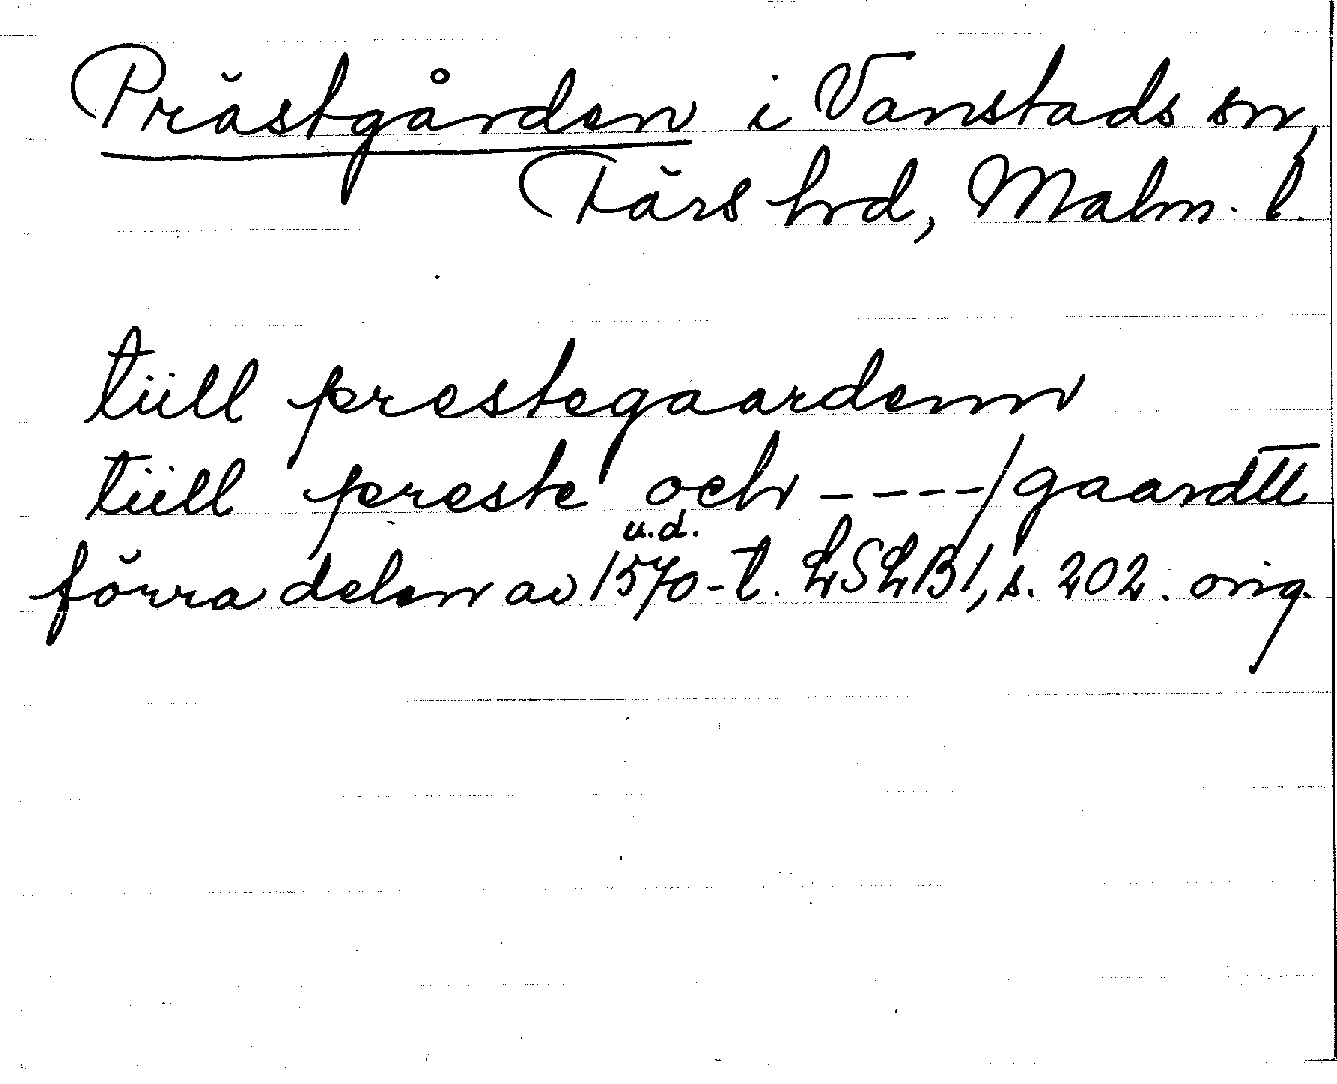 Prästgården i Vanstads sn,
Färs hrd, Malm. l.
tiill prestegaardenn
tiill preste och ----/gaardtt
u.d.
förra delen av 1570-t. LSLB1, s. 202. orig.